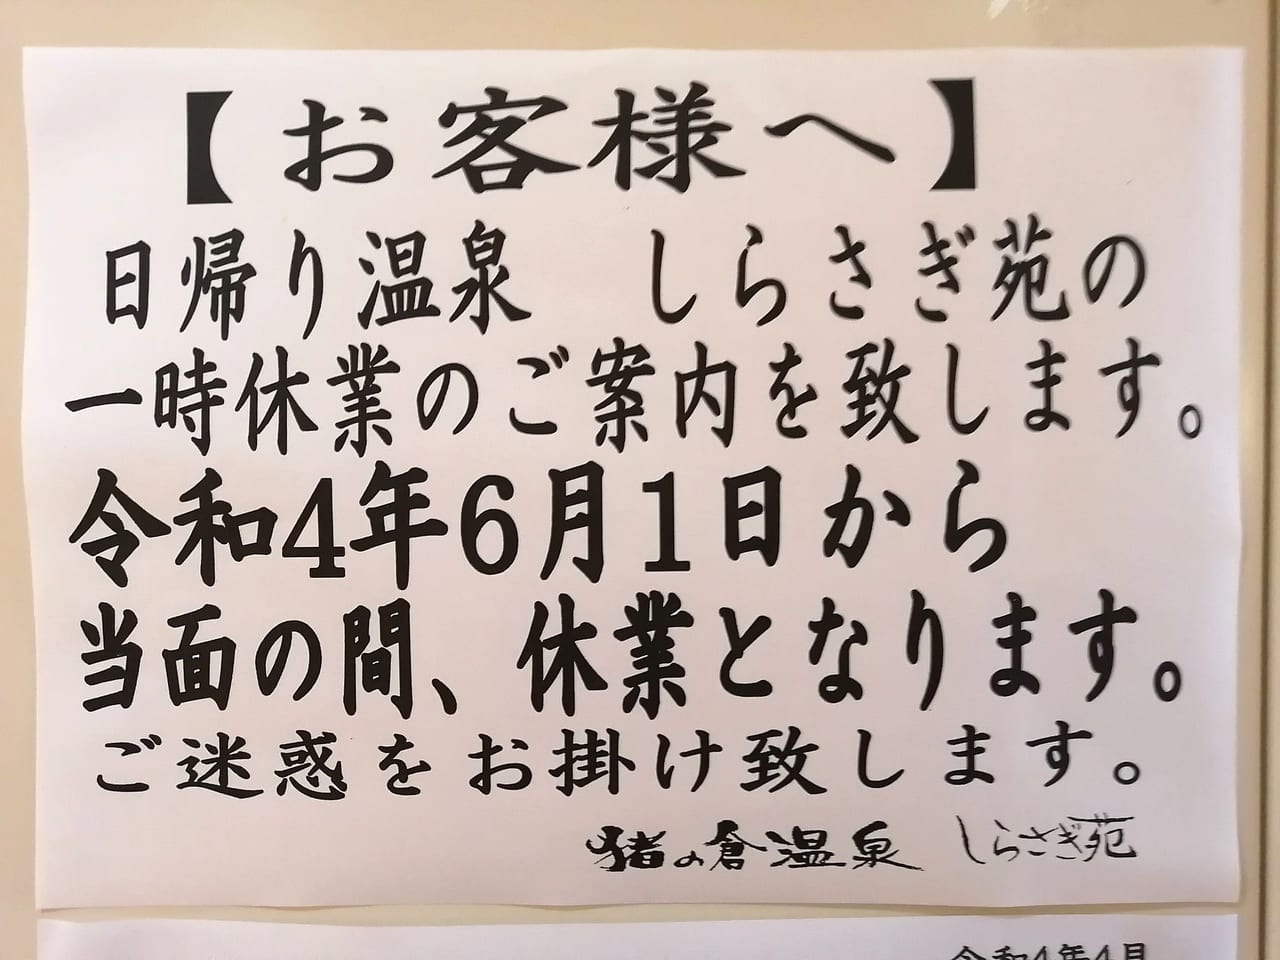 【お客様へ】
日帰り温泉　しらさぎ苑の
一時休業のご案内を致します。
令和4年6月1日から
当面の間、休業となります。
ご迷惑をお掛け致します。
猪の倉温泉　しらさぎ苑
令和4年4月